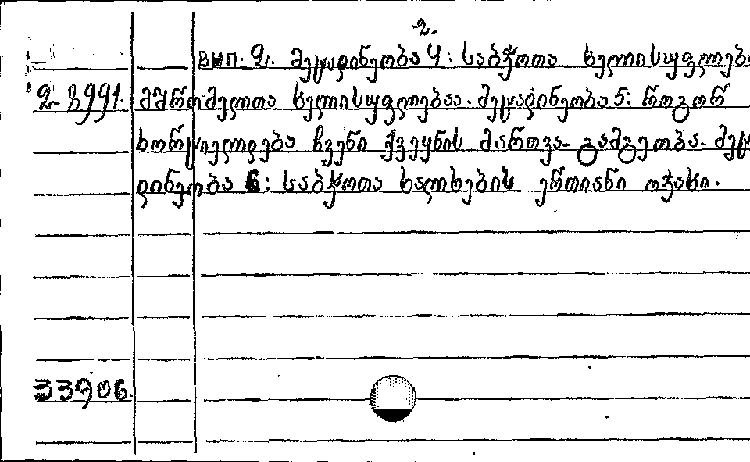 2.
вып. 2. მეცადინეობა 4: საბჭოთა ხელისუფლება
2-8991. მშრომელთა ხელისუფლებაა. მეცადინეობა 5: როგორ
ხორციელდება ჩვენი ქვეყნის მართვა-გამგეობა. მეცა
დინეობა 6: საბჭოთა ხალხების ერთიანი ოჯახი.
33906.